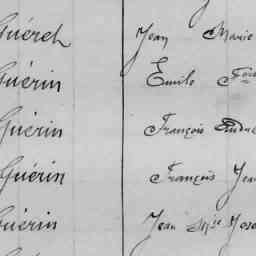 Guéret Jean Marie
Guérin Emile Fçois
Guérin François André
Guérin François Jean
Guérin Jean Mie